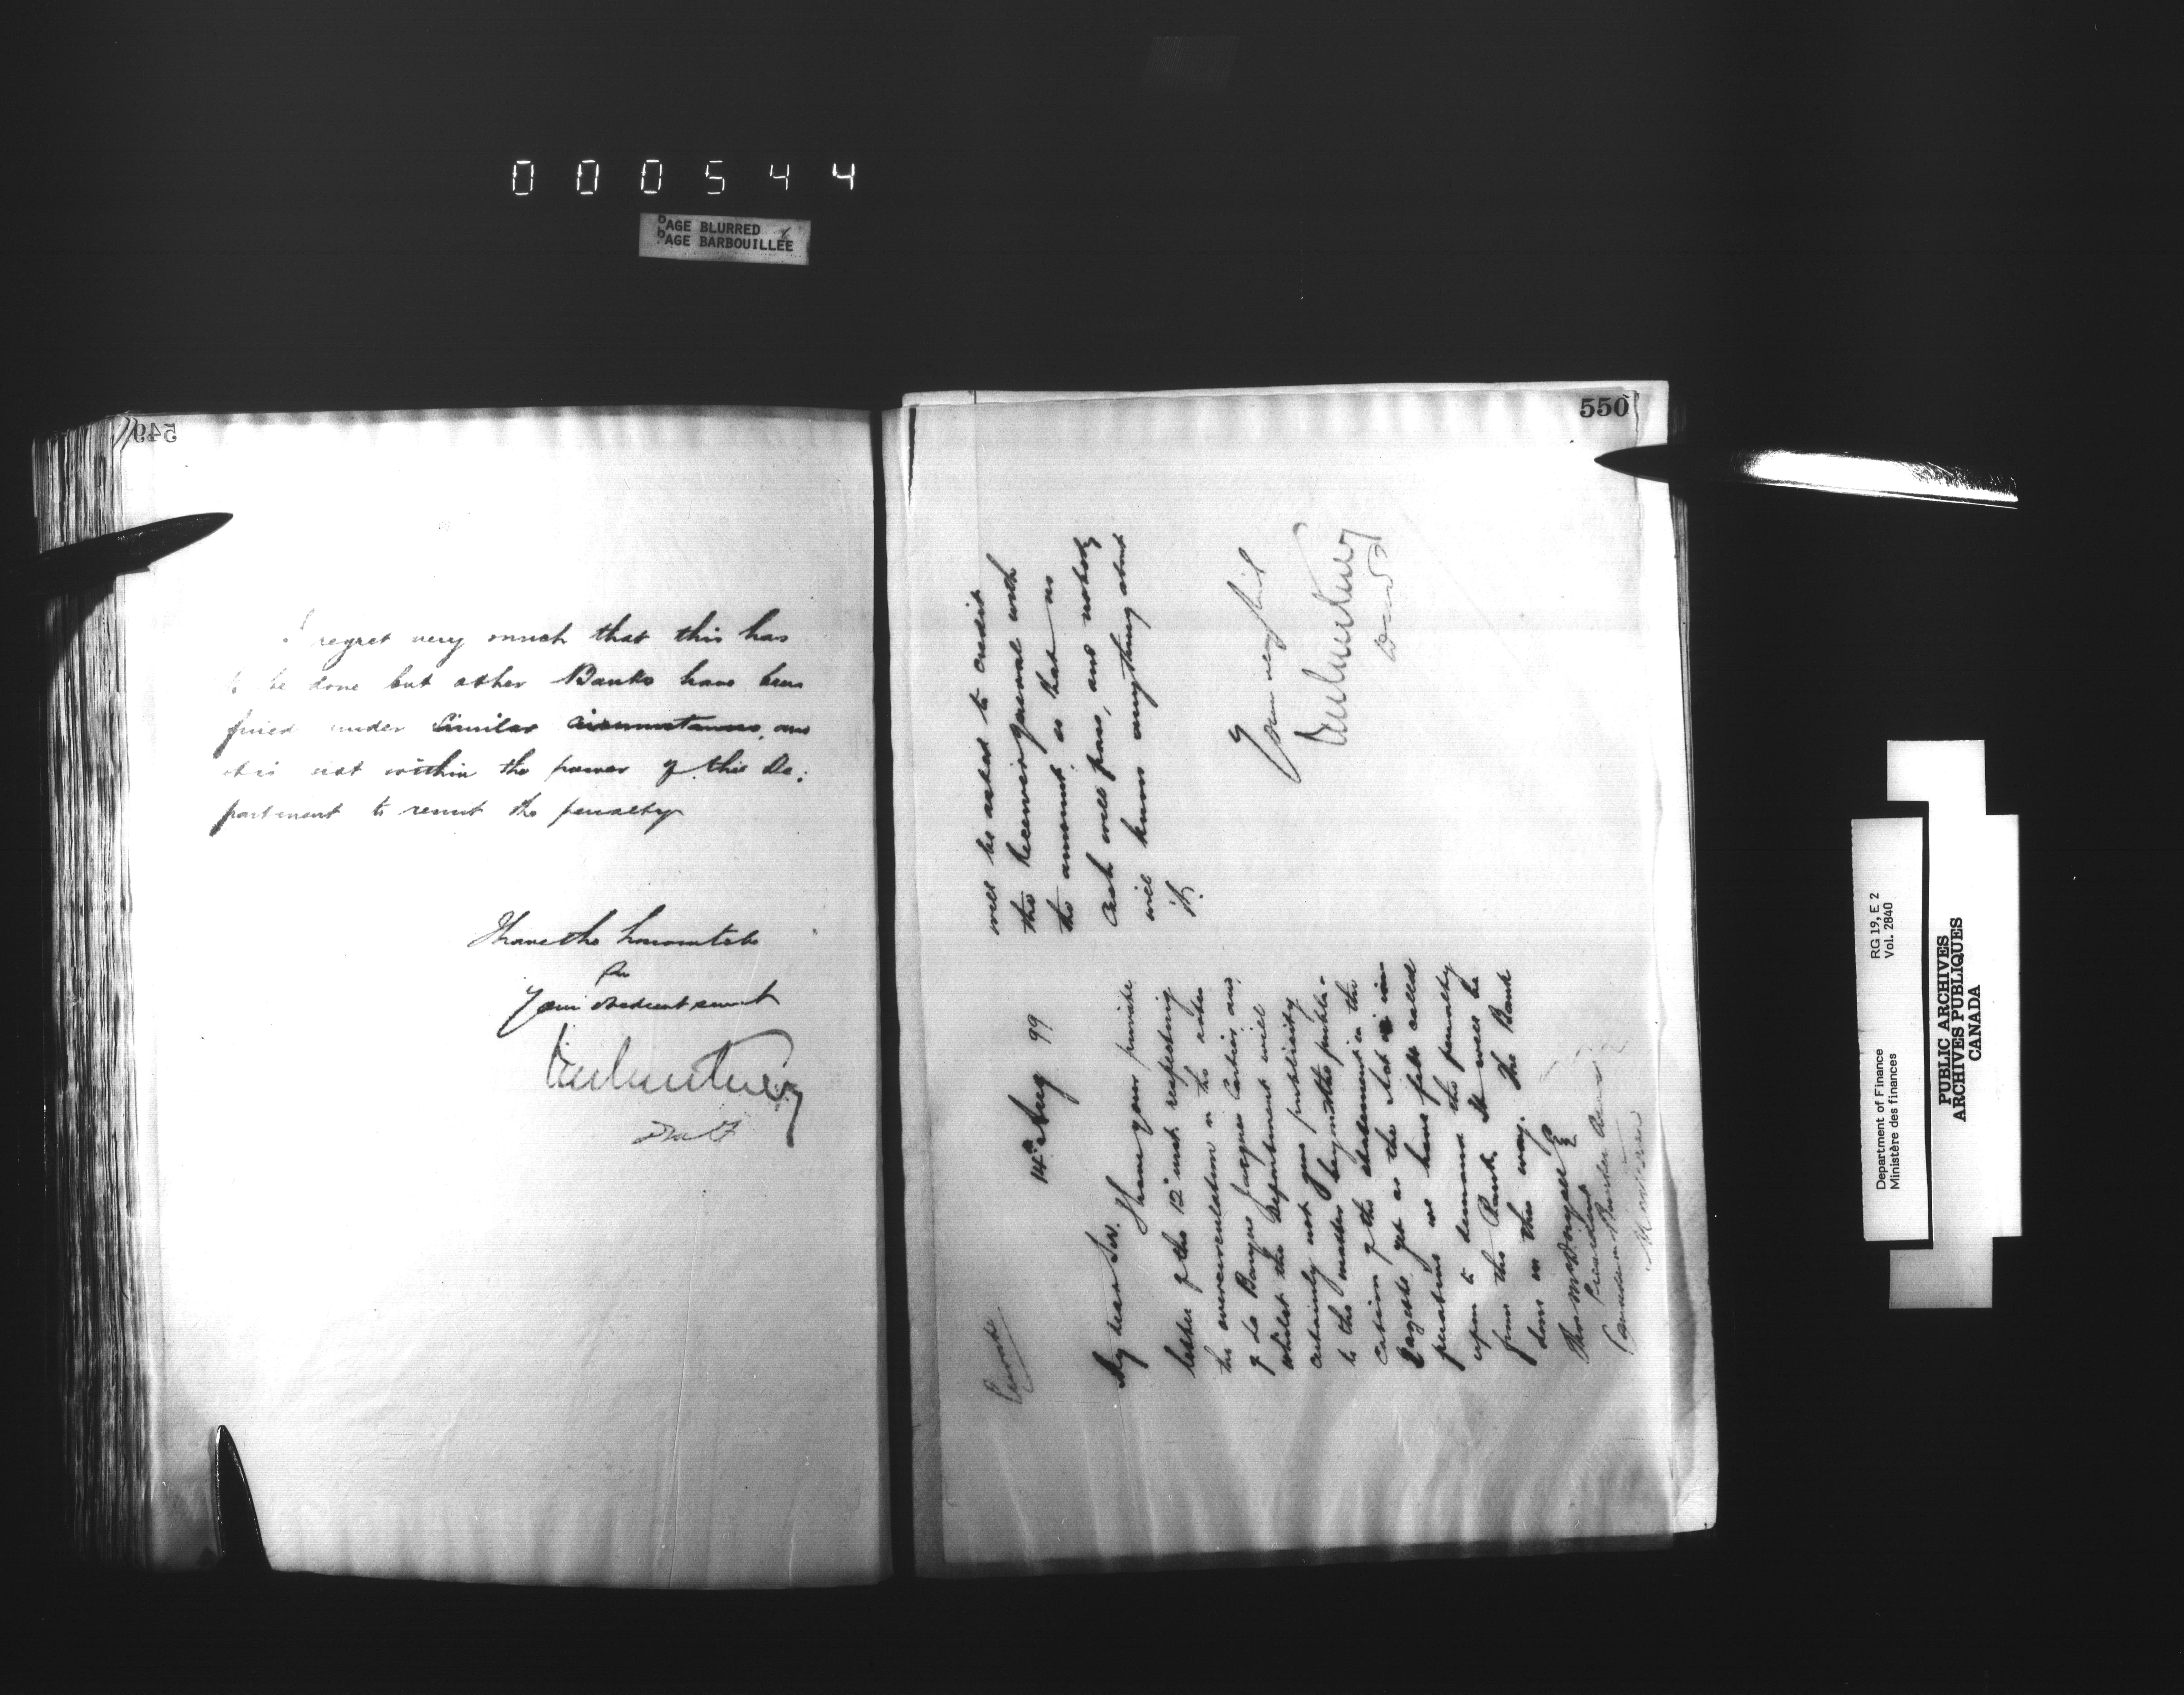 000544
PAGE BLURRED
PAGE BARBOUILLEE
549
I regret very much that this has
to be done but other Banks have been
fined under similar circumstances, and
it is not within the power of this De:
partment to remit the penalty
I have the honour to be
Sir
Your obedient servant
JMCourtney
DMF
550
Private
14th Aug 99
My dear Sir,
I have your private
letter of the 12th inst respecting
the overcirculation in the notes
of La Banque Jacques Cartier, and
whilst the Department will
certainly not give publicity
to the matter beyond the publi-
cation of the statement in the
Gazette yet as the Act is im-
perative we have felt called
upon to demand the penalty
from the Bank. It will be
done in this way. The Bank
Thos McDougall Esq
President
Canadian Bankers Assn
Montreal
will be asked to credit
the Receiver General with
the amount, so that no
cash will pass, and nobody
will know anything about
it.
Yours very truly
JMCourtney
RG 19, E 2
Vol. 2840
Department of Finance
Ministère des finances
PUBLIC ARCHIVES
ARCHIVES PUBLIQUES
CANADA